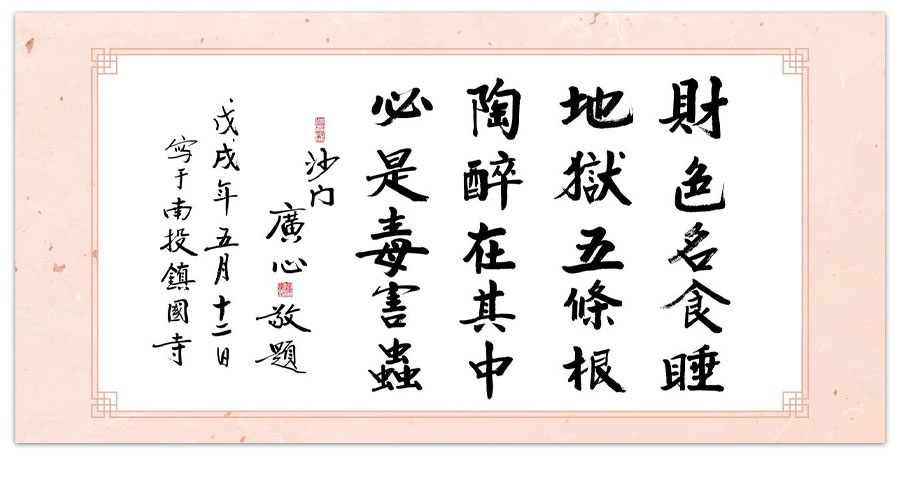 財色名食睡
地獄五條根
陶醉在其中
必是毒害蟲
沙门
廣心敬題
戊戌年五月十二日
寫于南投鎮國寺